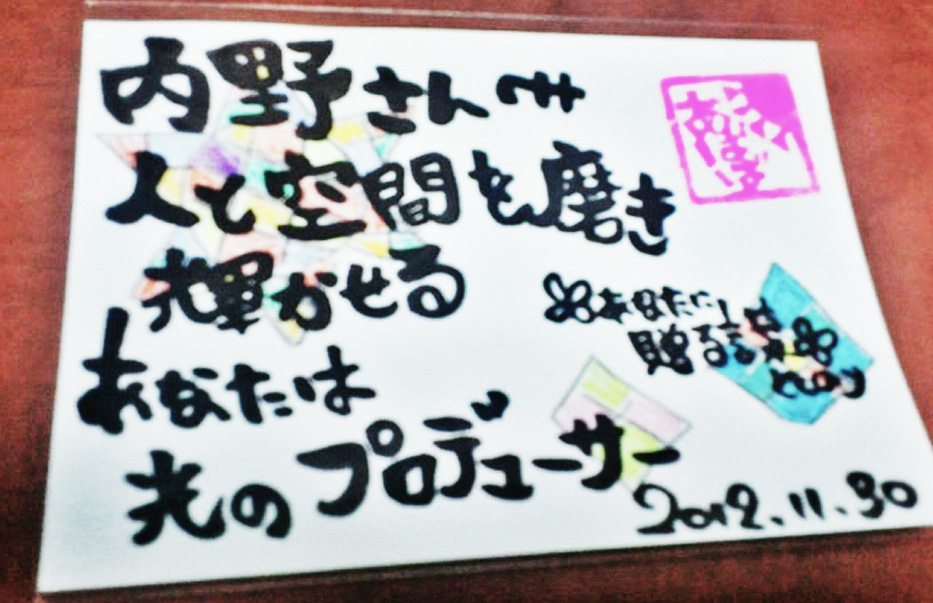 内野さん
人と空間を磨き
輝かせる
あなたは
光のプロデューサー
あなたに
贈る言葉
2012.11.30